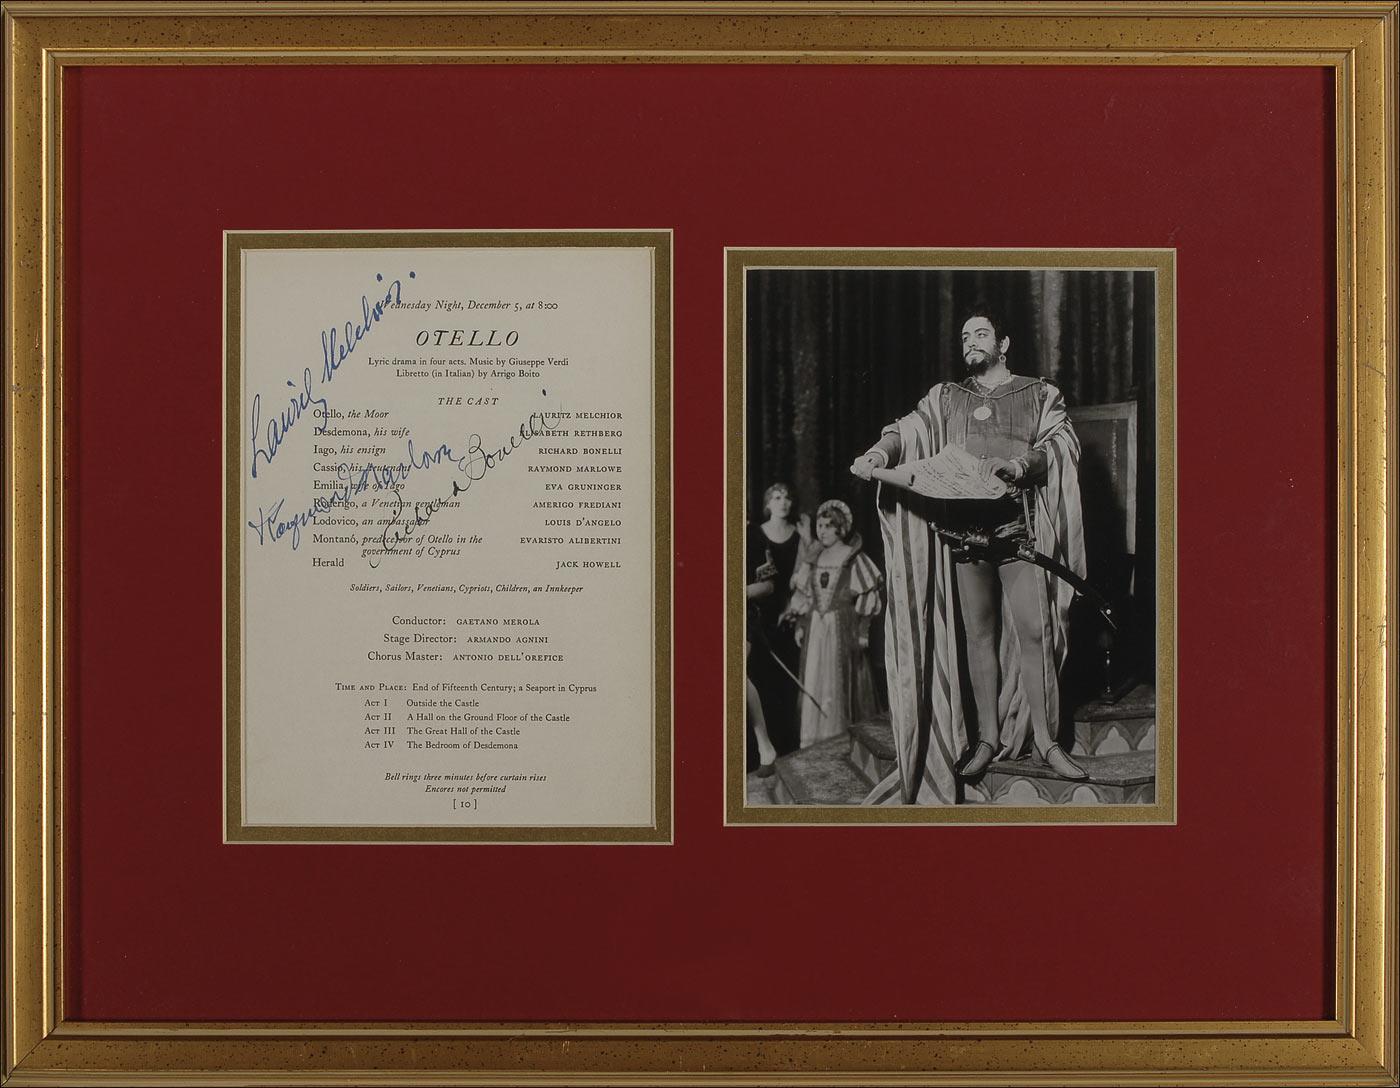 Wednesday Night, December 5, at 8:00
OTELLO
Lyric drama in four acts. Music by Giuseppe Verdi
Libretto (in Italian) by Arrigo Boito
THE CAST
Otello, the Moor LAURITZ MELCHIOR
Desdemona, his wife ELISABETH RETHBERG
Iago, his ensign RICHARD BONELLI
Cassio, his lieutenant RAYMOND MARLOWE
Emilia, wife of Iago EVA GRUNINGER
Roderigo, a Venetian gentleman AMERIGO FREDIANI
Lodovico, an ambassador LOUIS D'ANGELO
Montanó, predecessor of Otello in the EVARISTO ALIBERTINI
government of Cyprus
Herald JACK HOWELL
Soldiers, Sailors, Venetians, Cypriots, Children, an Innkeeper
Conductor: GAETANO MEROLA
Stage Director: ARMANDO AGNINI
Chorus Master: ANTONIO DELL'OREFICE
TIME AND PLACE: End of Fifteenth Century; a Seaport in Cyprus
ACT I Outside the Castle
ACT II A Hall on the Ground Floor of the Castle
ACT III The Great Hall of the Castle
ACT IV The Bedroom of Desdemona
Bell rings three minutes before curtain rises
Encores not permitted
[ 10 ]
Lauritz Melchior
Raymond Marlowe
Richard Bonelli